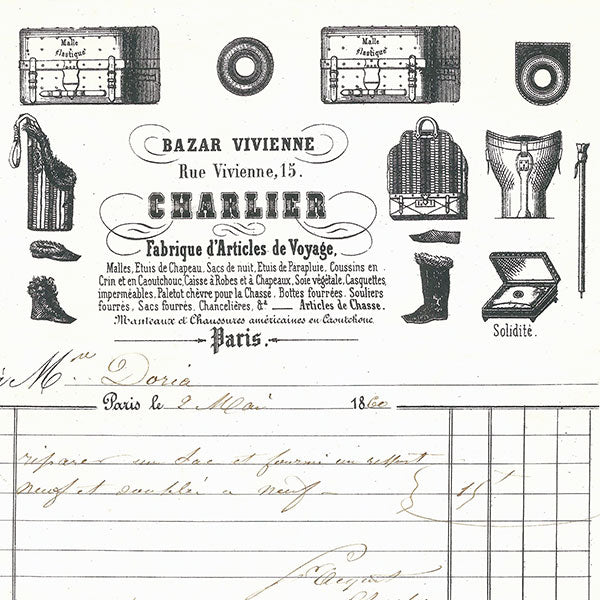 Malle
Elastique
Malle
Elastique
BAZAR VIVIENNE
Rue Vivienne, 15.
CHARLIER
Fabrique d'Articles de Voyage,
Malles, Etuis de Chapeau, Sacs de nuit, Etuis de Parapluie, Coussins en
Crin et en Caoutchouc, Caisse à Robes et à Chapeaux, Soie végétale, Casquettes
imperméables, Paletot chèvre pour la Chasse. Bottes fourrées. Souliers
fourrés. Sacs fourrés. Chancelières, &a — Articles de Chasse.
Manteaux et Chaussures américaines en Caoutchouc
Paris.
Solidité.
à Mme Doria
Paris le 2 Mai 1860
réparer un sac et fourni un ressort
neuf et doublé a neuf 15f